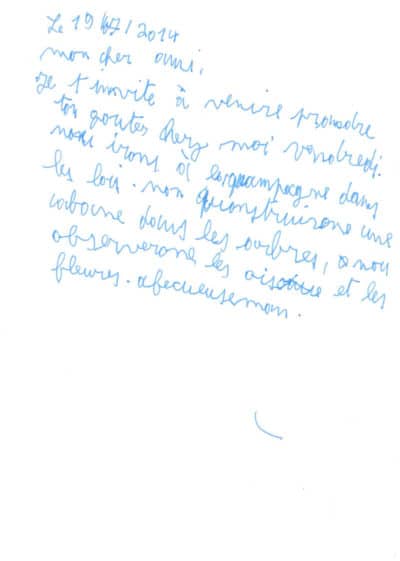 Le 19/07/2014
mon cher ami,
Je t invite à venire prendre
ton gouter cherz moi vendredi.
nous irons à la quampagne dans
les bois. non quonstruirone une
cabane dans les arbres, nou
observerone les oiseaue et les
fleures. afecueusemans.